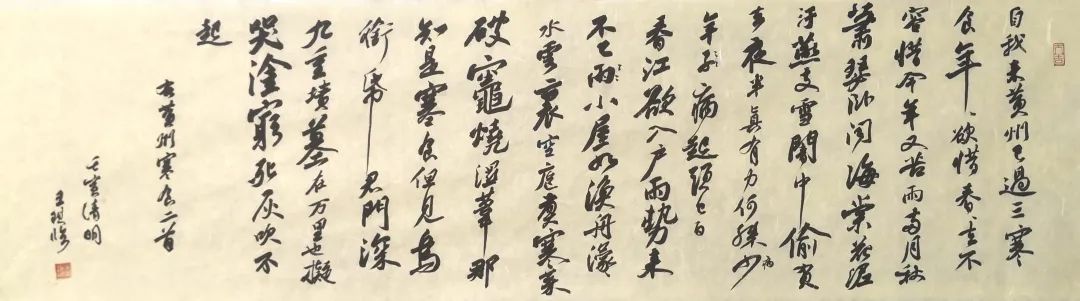 自我来黄州已過三寒
食年〻欲惜春〻去不
容惜今年又苦雨兩月秋
蕭瑟卧聞海棠花泥
汙燕支雪闇中偷負
去夜半真有力何殊少病
年子病起頭已白
春江欲入户雨勢来
不已雨小屋如漁舟濛〻
水雲裏空庖煮寒菜
破竈燒濕葦那
知是寒食但見烏
銜帋君門深
九重墳墓在万里也擬
哭塗窮死灰吹不
起
右黄州寒食二首
壬寅清明
王